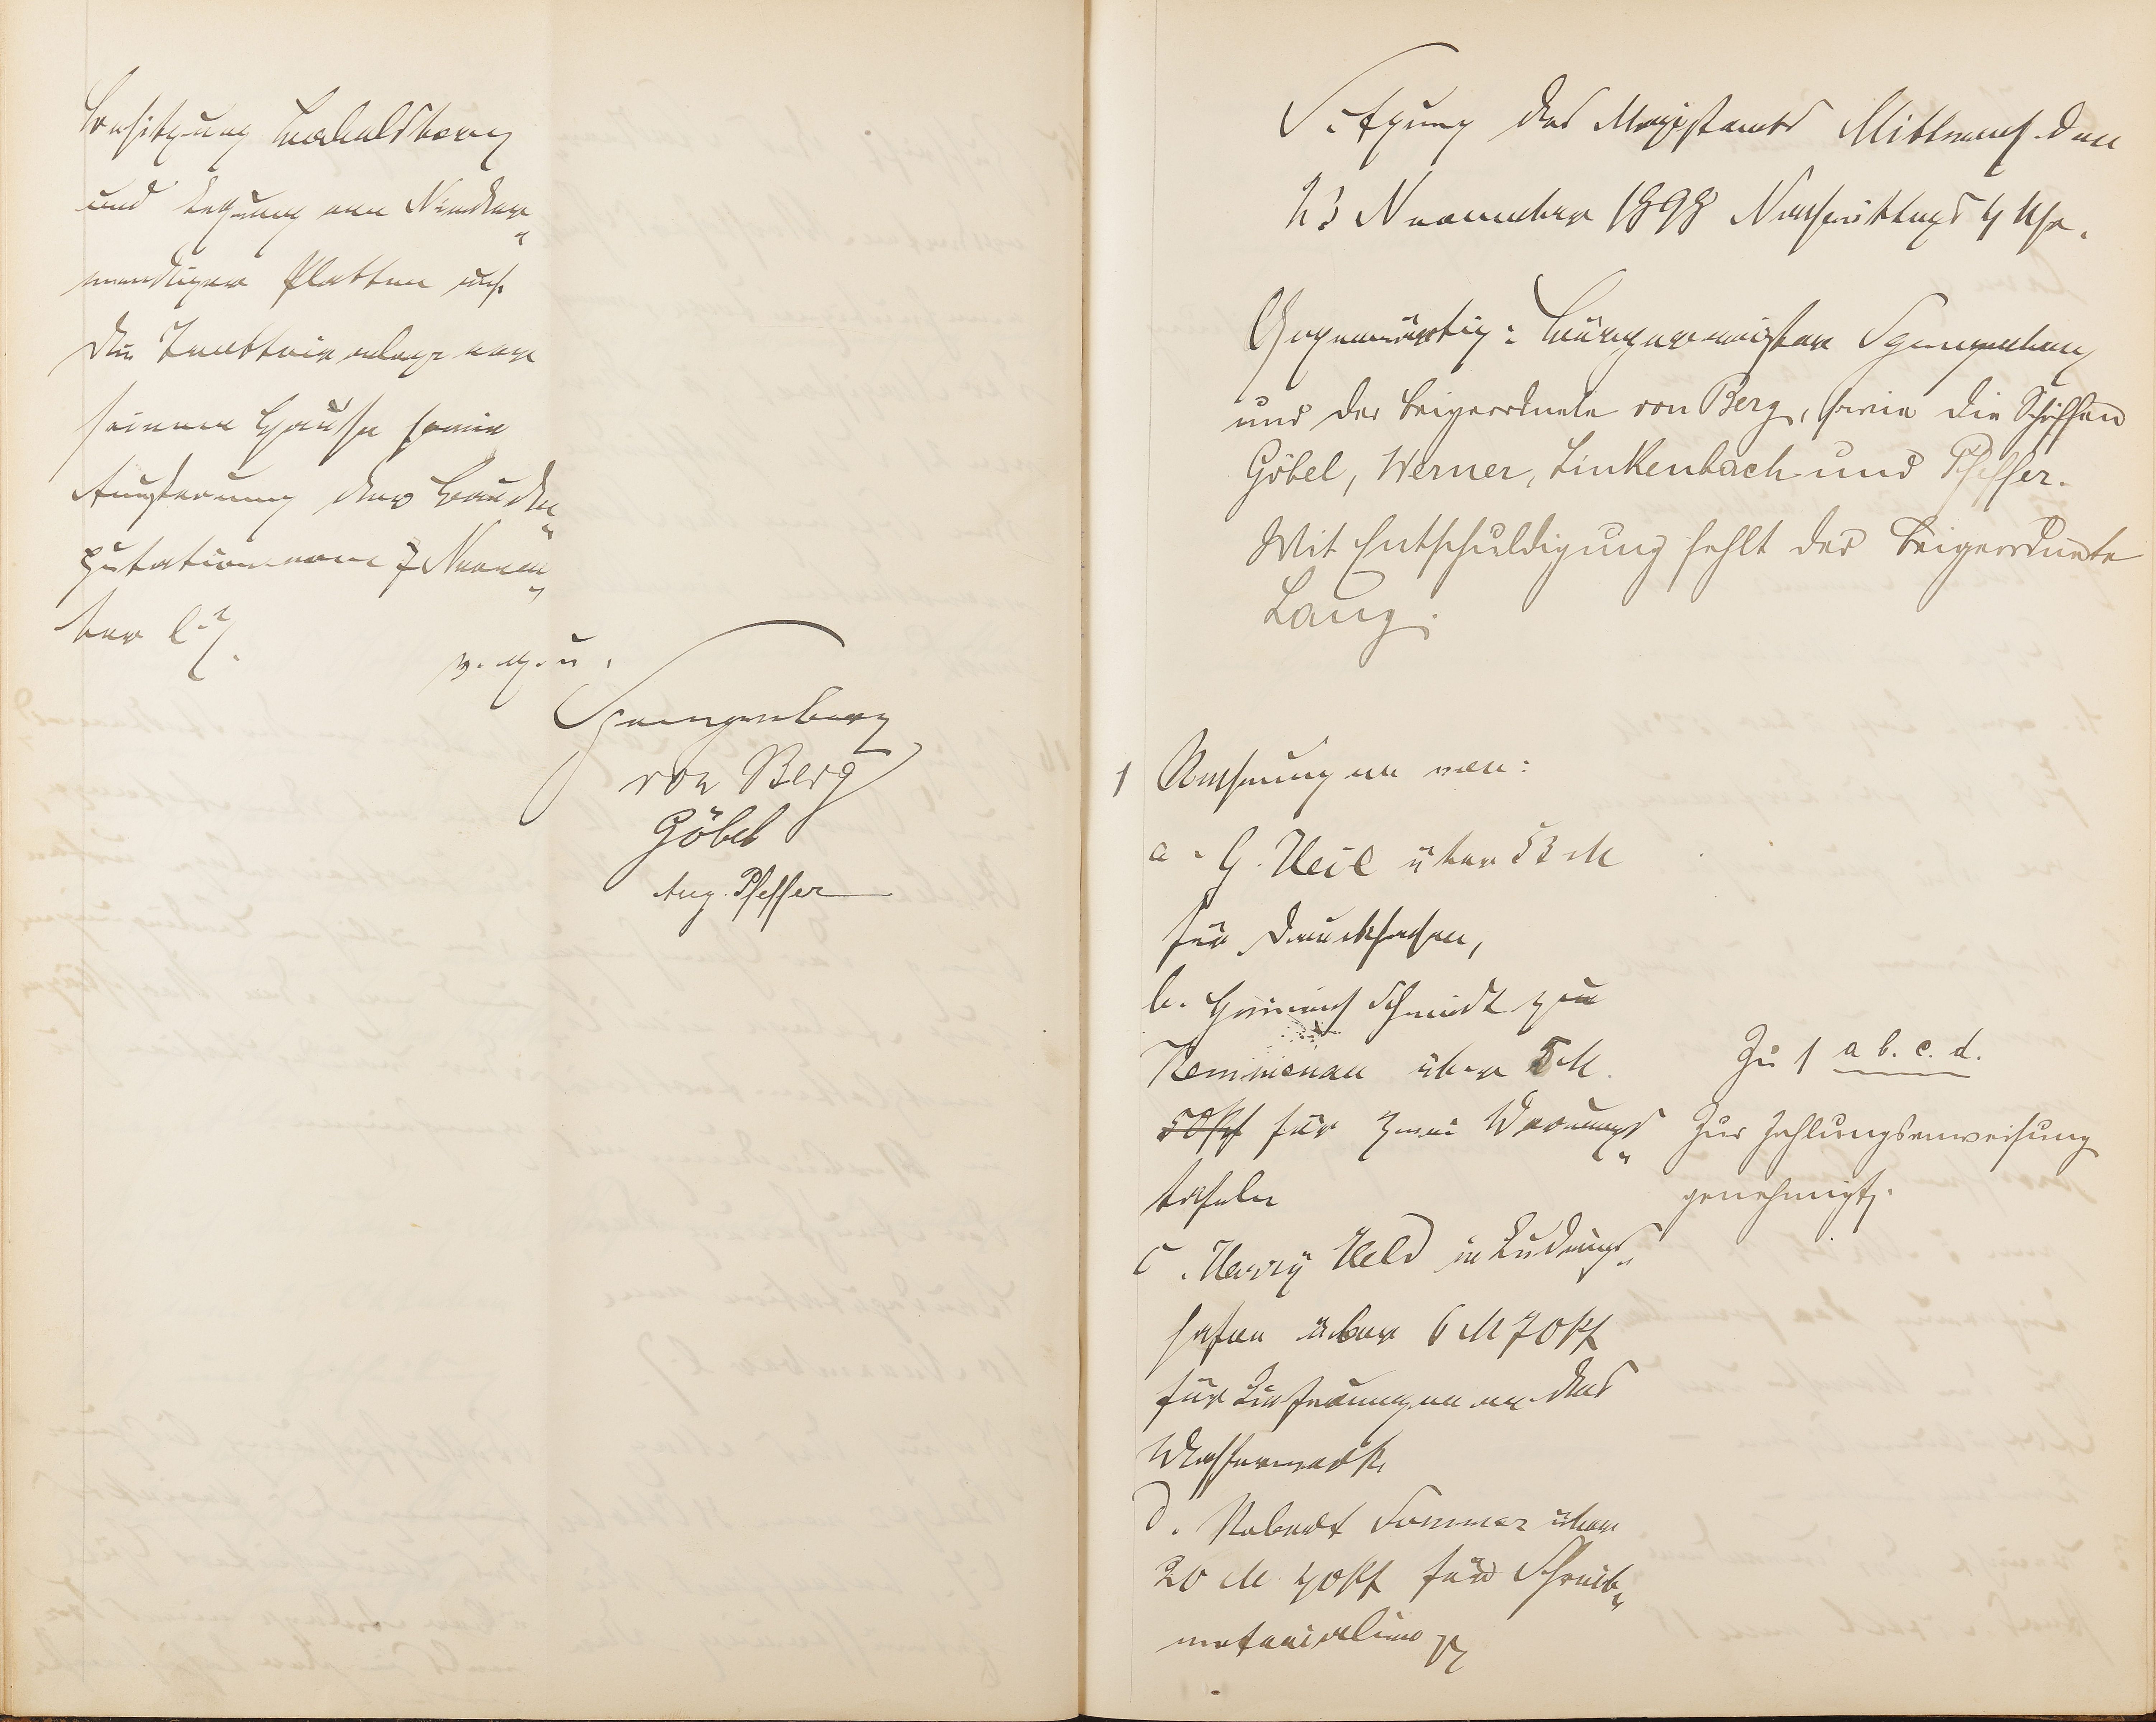 und Legung von Nieder=
mendiger Platten auf
die Trottoiranlage vor
seinem Hause sowie
Äußerung der Baude=
putation vom 7 Novem=
ber l. J.
v. g. u.
Spangenberg
von Berg
Göbel
Aug. Pfeffer
Sitzung des Magistrats Mittwoch den
23 November 1898 Nachmittags 4 Uhr.
Gegenwärtig: Bürgermeister Spangenberg
und der Beigeordnete von Berg, sowie die Schöffen
Göbel, Werner, Linkenbach und Pfeffer.
Mit Entschuldigung fehlt der Beigeordnete
Lang.
1 Rechnungen von:
a. G. Heil über 53 M
für Drucksachen,
b. Heinrich Schmidt zu
Kemmenau über 5 M.
50 Pf für zwei Warnungs=
tafeln
c. Harry Held in Ludwigs=
hafen über 6 M 70 Pf
für Lieferungen an das
Wasserwerk
d. Robert Sommer über
20 M 40 Pf für Schreib=
materialien
Zu 1 a b. c. d.
Zur Zahlungsanweisung
genehmigt.